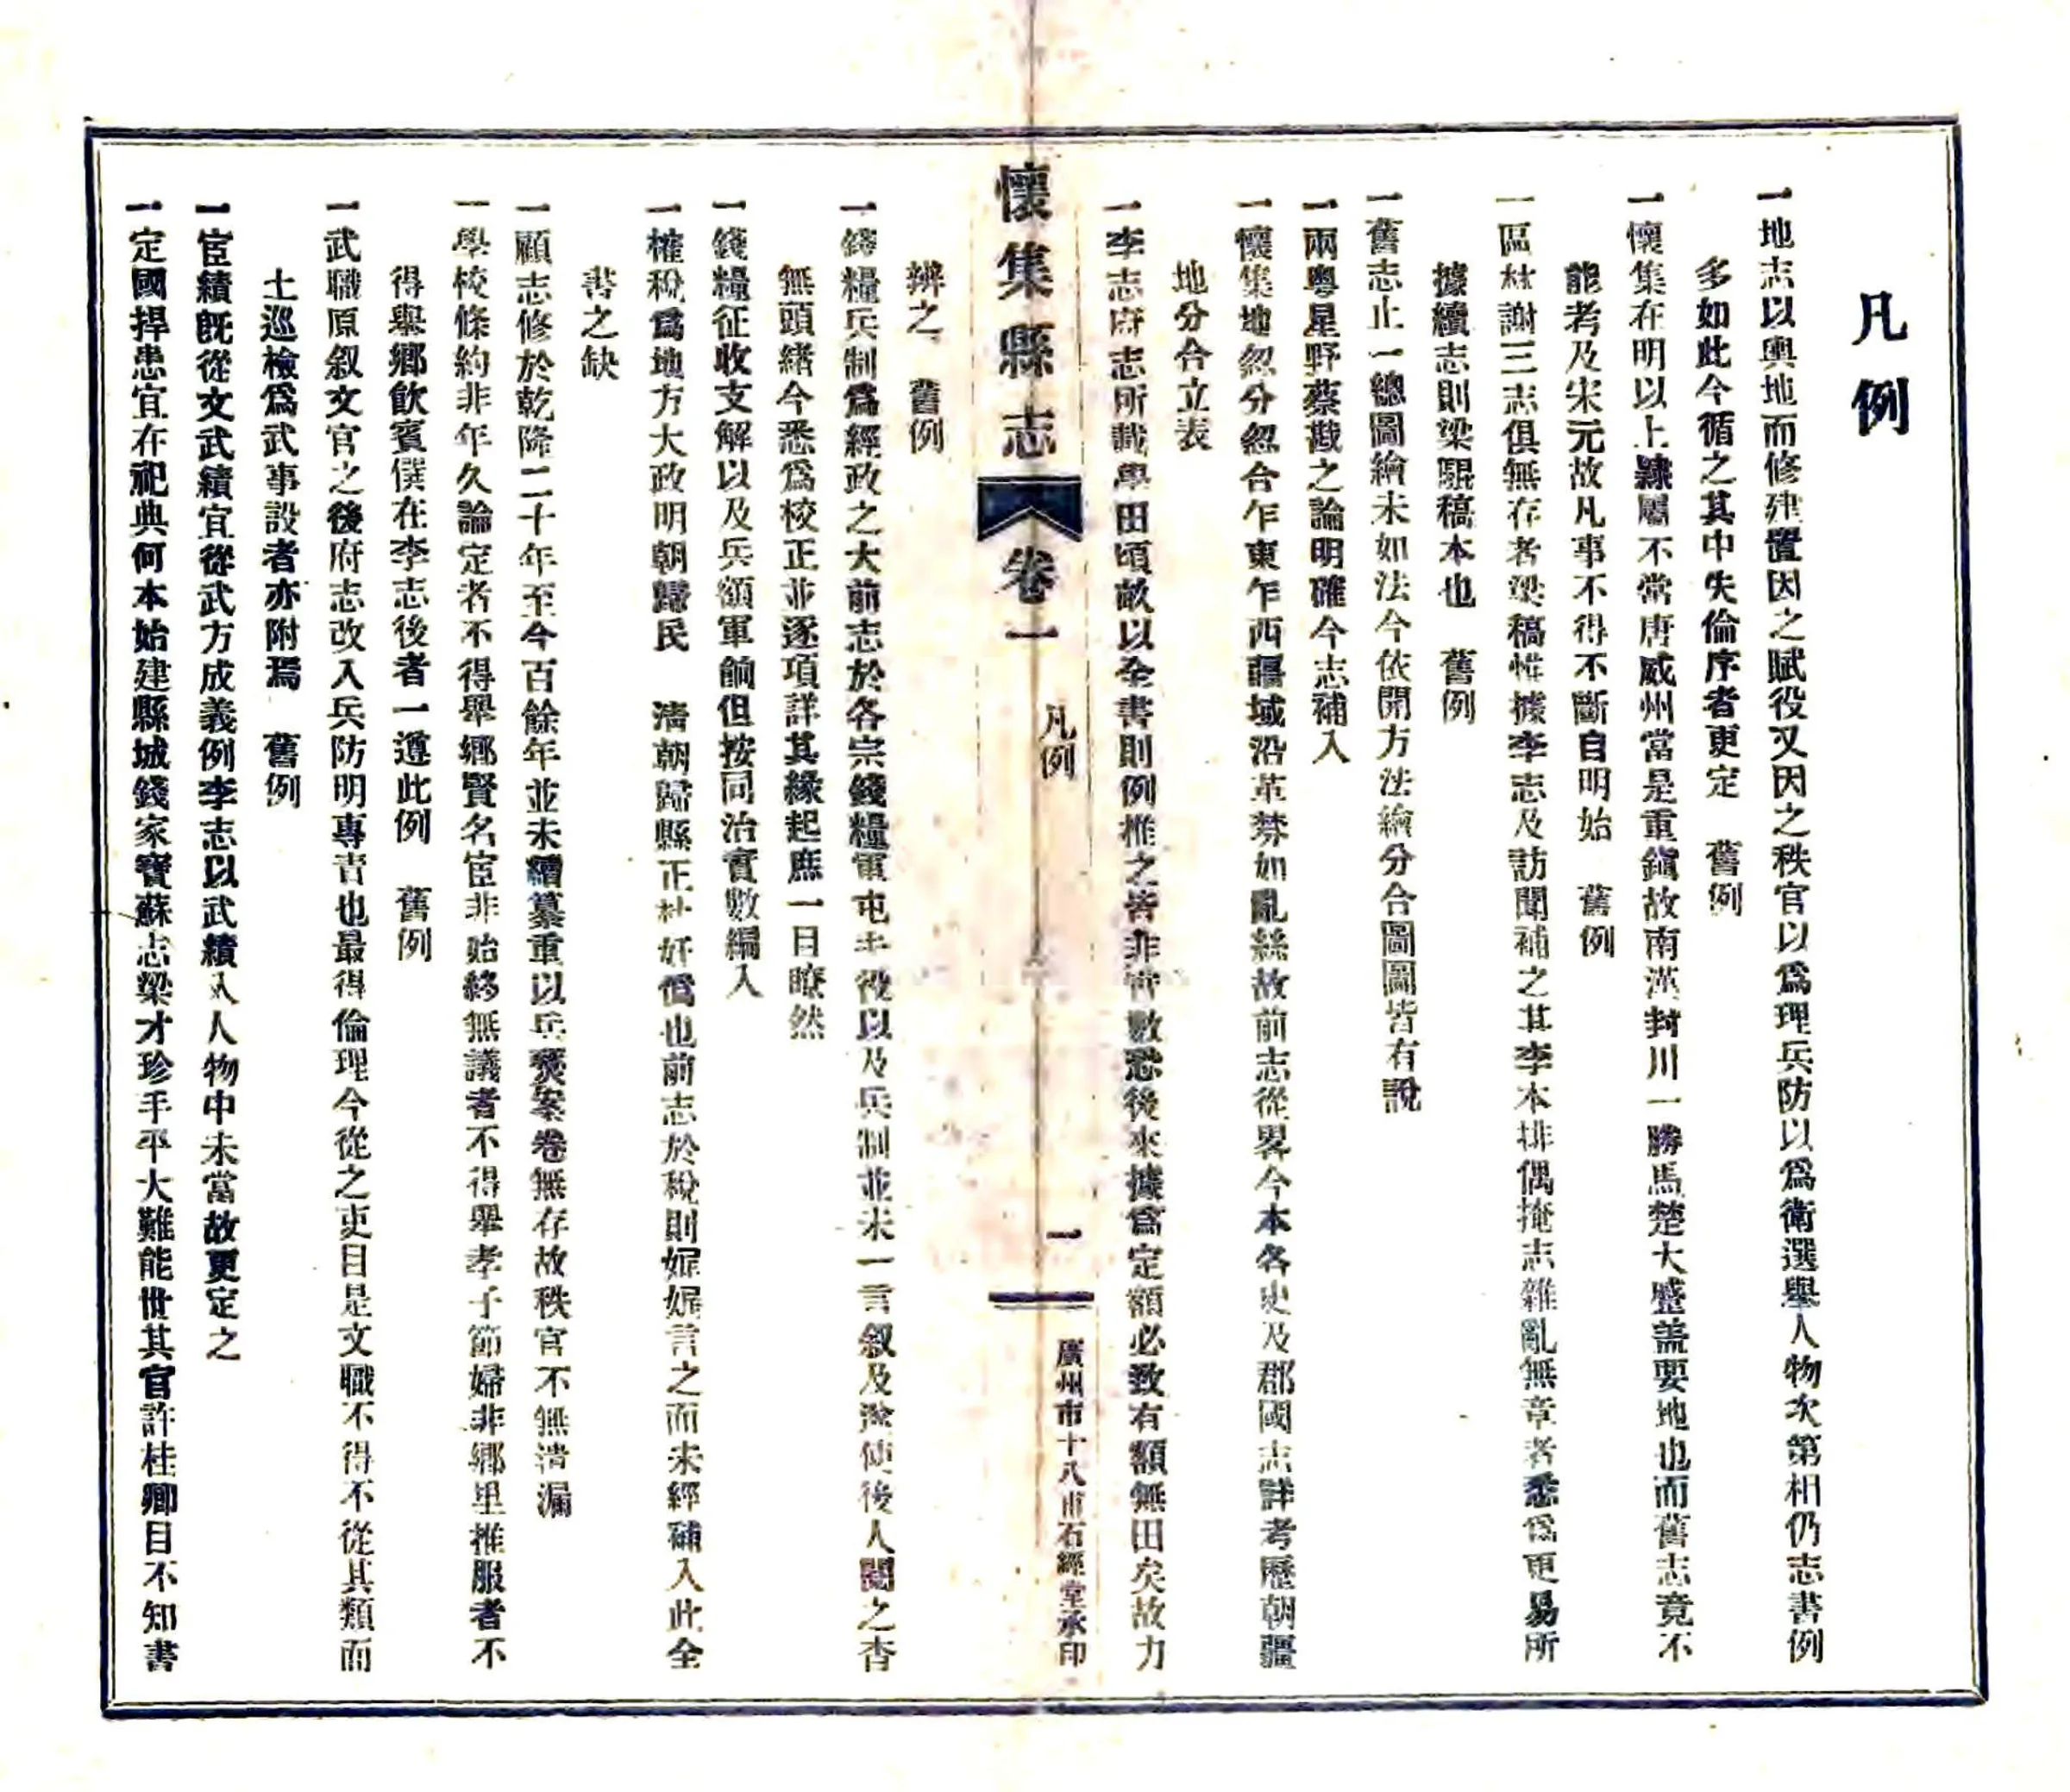 凡例
一地志以輿地而修建置因之賦役又因之秩官以爲理兵防以爲衛選舉人物次第相仍志書例
多如此今循之其中失倫序者更定　舊例
一懷集在明以上隸屬不常唐威州當是重鎭故南漢封川一勝馬楚大蹙盖要地也而舊志竟不
能考及宋元故凡事不得不斷自明始　舊例
一區林謝三志俱無存者梁稿惟據李志及訪聞補之其李本排偶掩志雜亂無章者悉爲更易所
據續志則梁騉稿本也　舊例
一舊志止一總圖繪未如法今依開方法繪分合圖圖皆有說
一兩粤星野蔡戡之論明確今志補入
一懷集地忽分忽合乍東乍西疆域沿革棼如亂絲故前志從畧今本各史及郡國志詳考歷朝疆
地分合立表
一李志府志所載學田頃畝以全書則例推之皆非實數恐後來據爲定額必致有額無田矣故力
辨之　舊例
一錢糧兵制爲經政之大前志於各宗錢糧軍屯丰役以及兵制並未一言叙及遂使後人閱之杳
無頭緒今悉爲校正並逐項詳其緣起庶一目瞭然
一錢糧征收支解以及兵額軍餉但按同治實數編入
一榷稅爲地方大政明朝歸民　淸朝歸縣正杜奸僞也前志於稅則娓娓言之而未經補入此全
書之缺
一顧志修於乾隆二十年至今百餘年並未續纂重以兵燹案卷無存故秩官不無淸漏
一學校條約非年久論定者不得舉鄉賢名宦非始終無議者不得舉孝子節婦非鄉里推服者不
得舉鄉飲賓僕在李志後者一遵此例　舊例
一武職原叙文官之後府志改入兵防明專責也最得倫理今從之吏目是文職不得不從其類而
土巡檢爲武事設者亦附焉　舊例
一宦績旣從文武績宜從武方成義例李志以武績入人物中未當故更定之
一定國捍患宜在祀典何本始建縣城錢家寶蘇志梁才珍手平大難能世其官許桂卿目不知書
懷集縣志
卷一
凡例
一
廣州市十八甫石經堂承印